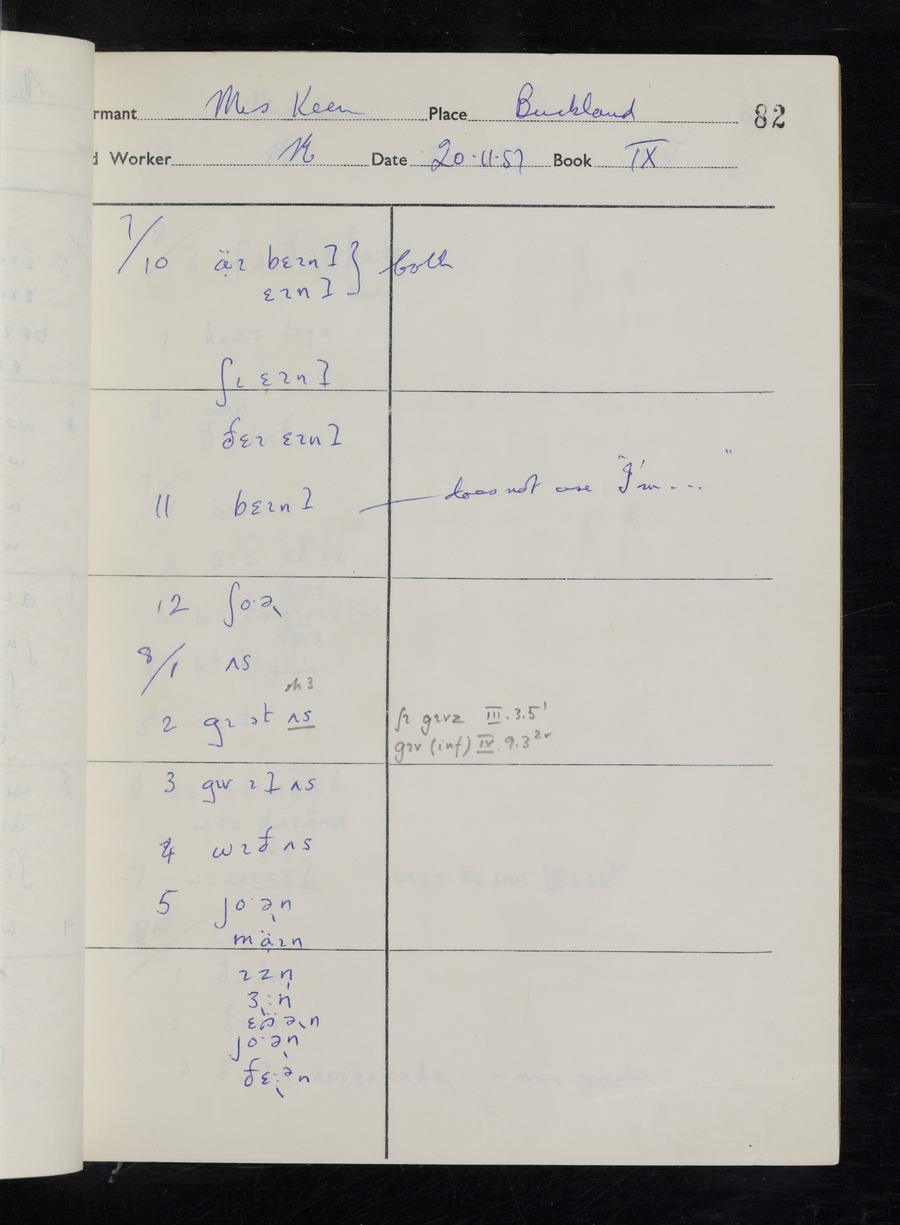 rmant Mrs Keen Place Buckland 82
d Worker Date 20.11.57 Book IX
7/10 äɪ bɛɪnʔ } both
ɛɪnʔ
ʃɪ ɛɪnʔ
ðɛɪ ɛɪnʔ
11 bɛɪnʔ — does not use "I'm..."
12 ʃoˑə˞
8/1 ʌs
2 gɪ ət ʌs ʃɪ gɪvz III.3.5¹
gɪv (inf) IX 9.3
3 gɪv ɪʔ ʌs
4 wɪð ʌs
5 joˑə˞n
mäɪn
ɪzn̩
ɜ˞ːn
joˑə˞n
ðɛːə˞n